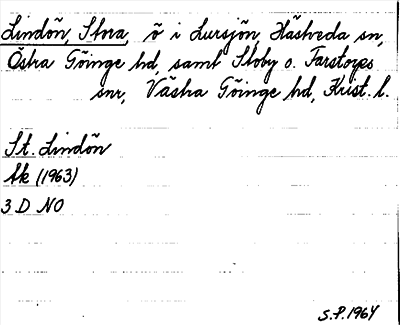 Lindön, Stora, ö i Lursjön, Hästveda sn,
Östra Göinge hd, samt Stoby o. Farstorps
snr, Västra Göinge hd, Krist. l.
St. Lindön
Ek (1963)
3 D NO
S.P. 1964